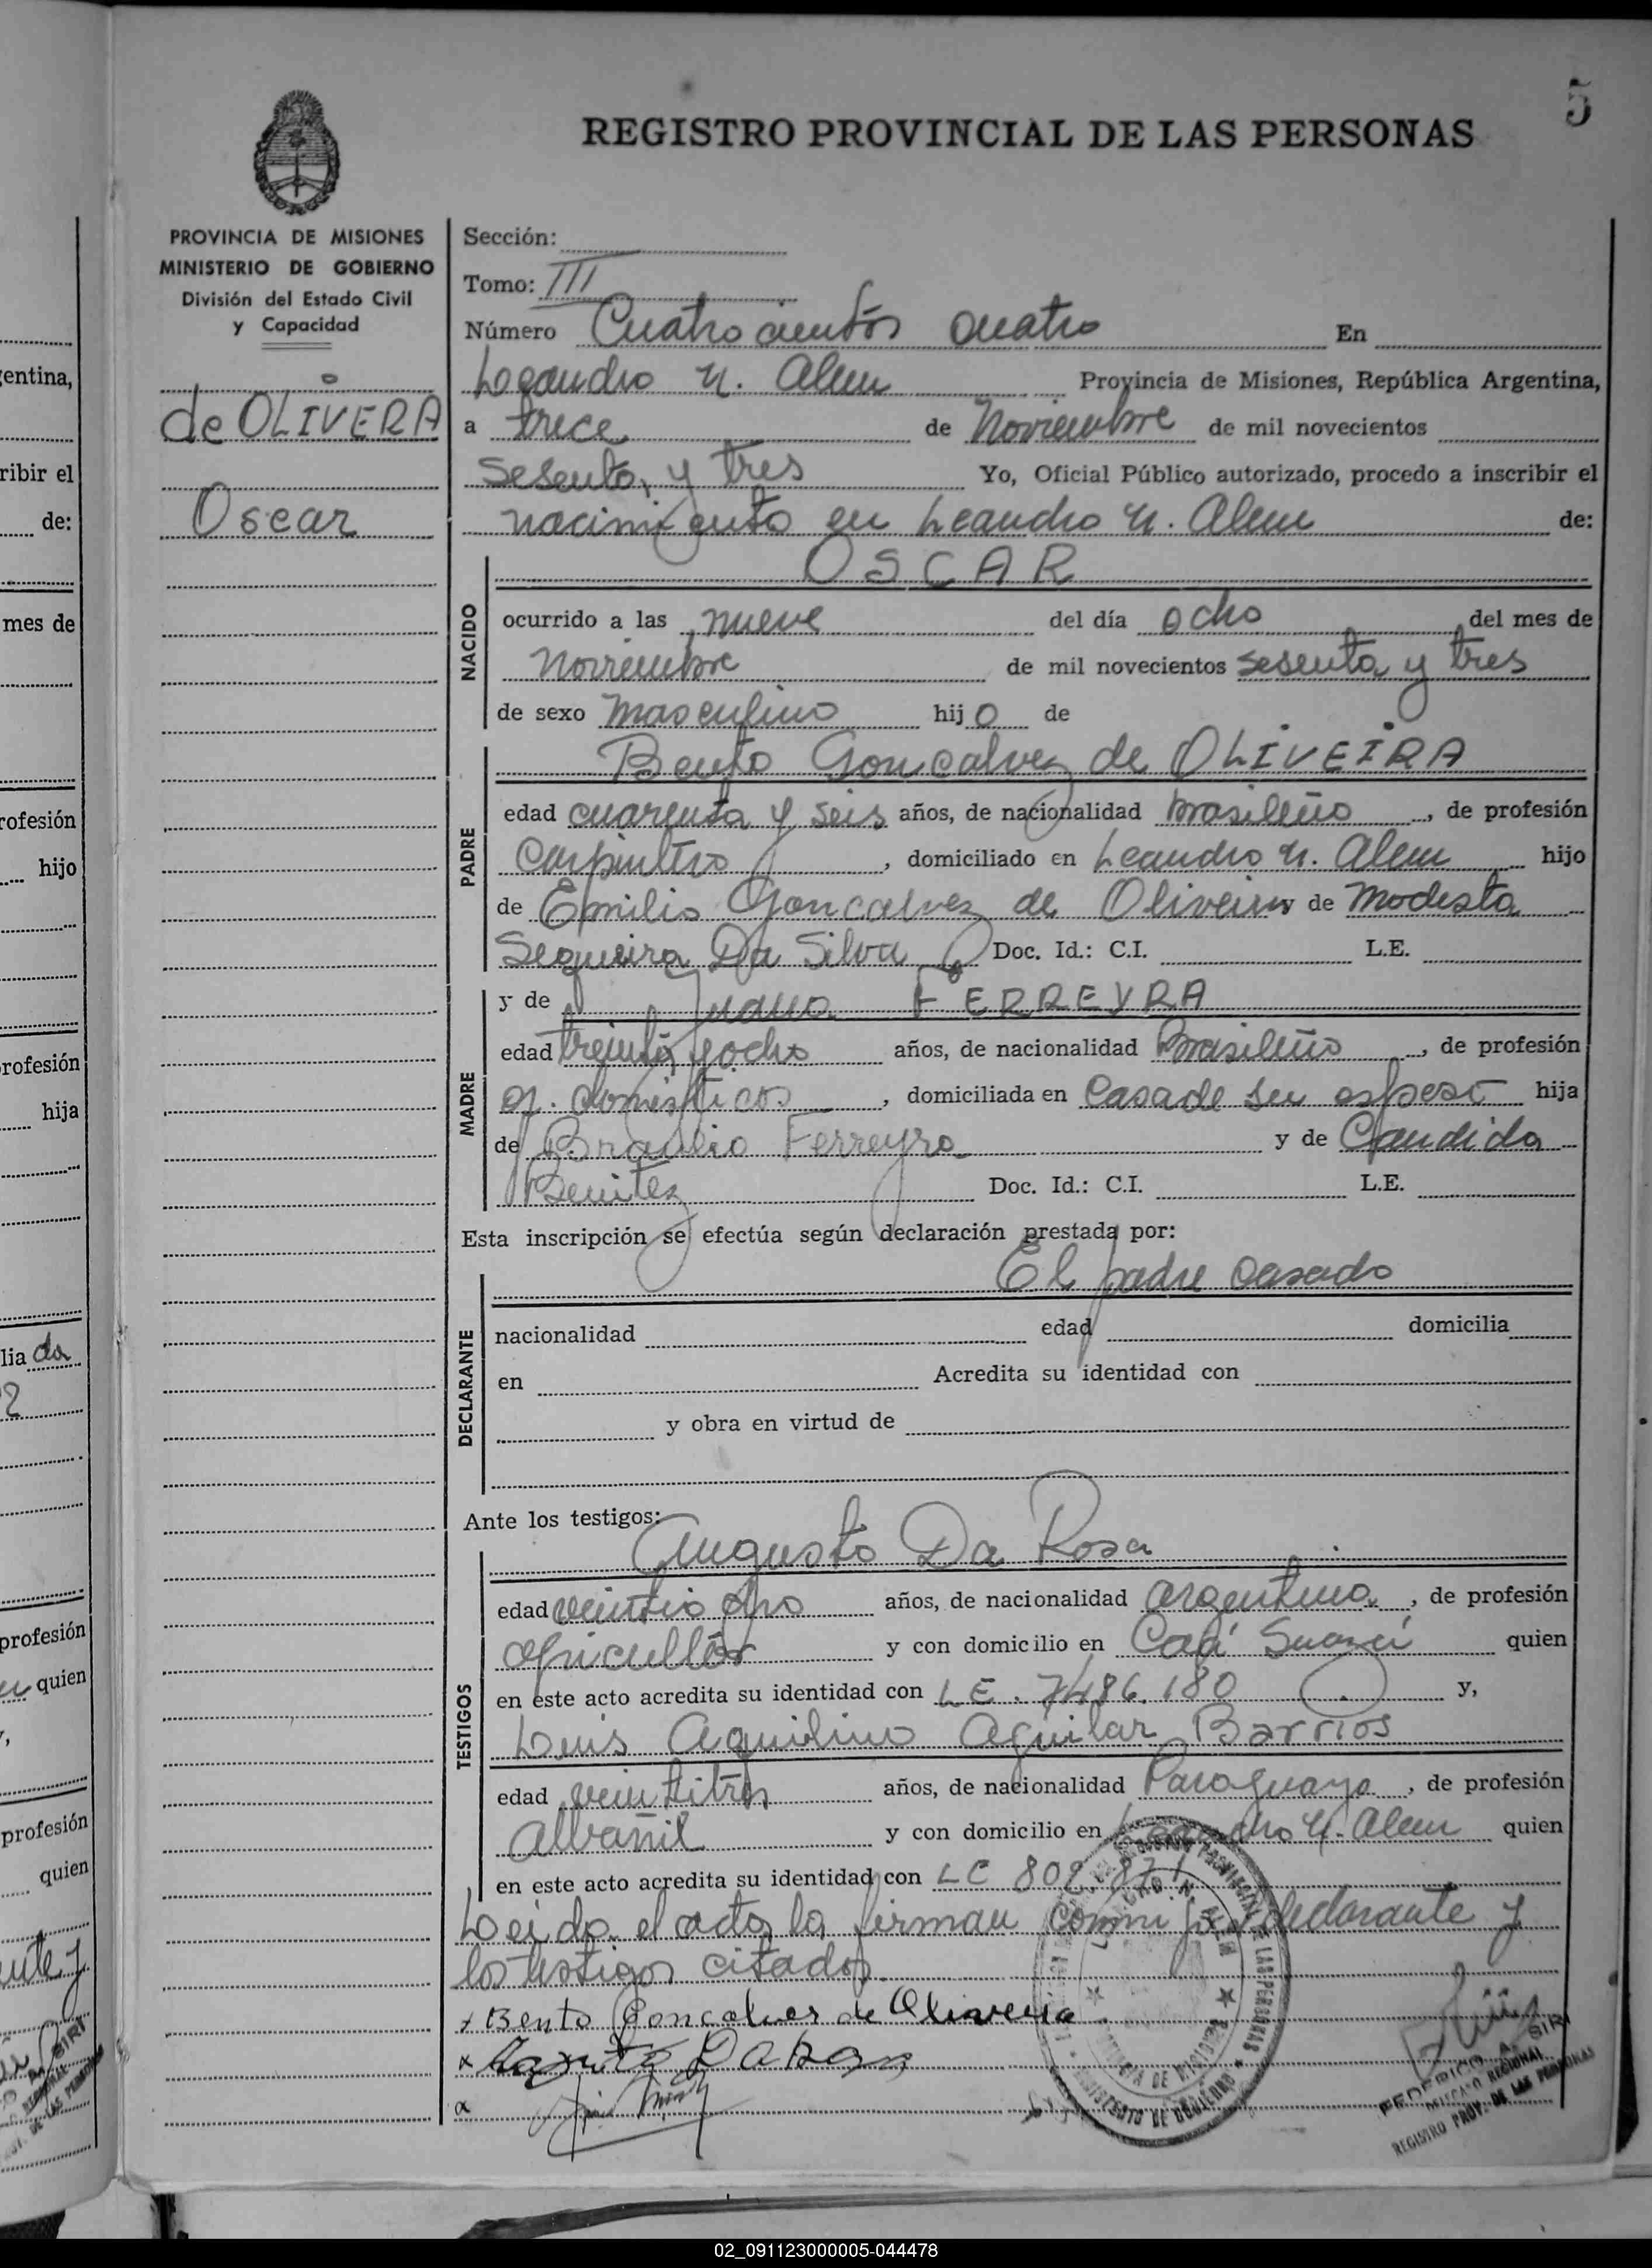 5
REGISTRO PROVINCIAL DE LAS PERSONAS
PROVINCIA DE MISIONES
MINISTERIO DE GOBIERNO
División del Estado Civil
y Capacidad
de OLIVERA
Oscar
Sección:
Tomo: III
Número Cuatrocientos cuatro En
Leandro N. Alem Provincia de Misiones, República Argentina,
a trece de Noviembre de mil novecientos
sesenta y tres Yo, Oficial Público autorizado, procedo a inscribir el
nacimiento en Leandro N. Alem de:
NACIDO
OSCAR
ocurrido a las nueve del día ocho del mes de
Noviembre de mil novecientos sesenta y tres
de sexo Masculino hijo de
PADRE
Bento Goncalvez de OLIVEIRA
edad cuarenta y seis años, de nacionalidad brasileño, de profesión
Carpintero, domiciliado en Leandro N. Alem hijo
de Emilio Goncalvez de Oliveira y de Modesta
Sequeira Da Silva Doc. Id.: C.I. L.E.
MADRE
y de Juana FERREYRA
edad treinta y ocho años, de nacionalidad Brasileño, de profesión
q. domésticos, domiciliada en Casa de su esposo hija
de Braulio Ferreyra y de Candida
Benitez Doc. Id.: C.I. L.E.
Esta inscripción se efectúa según declaración prestada por:
DECLARANTE
El padre casado
nacionalidad edad domicilia
en Acredita su identidad con
y obra en virtud de
Ante los testigos:
TESTIGOS
Augusto Da Rosa
edad años, de nacionalidad argentina, de profesión
y con domicilio en quien
en este acto acredita su identidad con LE. 7486.180 y,
Luis Aquilino Aguilar Barrios
edad veintitres años, de nacionalidad Paraguaya, de profesión
Albañil y con domicilio en Leandro N. Alem quien
en este acto acredita su identidad con LC 802.871
Leida el acta la firman conmigo declarante y
los testigos citados.
x Bento Goncalves de Oliveira
x Da Rosa
x
FEDERICO A. SIRI
DELEGADO REGIONAL
REGISTRO PROV. DE LAS PERSONAS
02_091123000005-044478